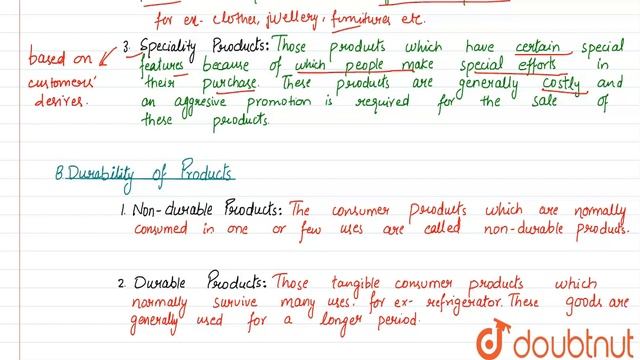 for ex- clothes, jwellery, furnitures etc.
3. Speciality Products: Those products which have certain special
features because of which people make special efforts in
their purchase. These products are generally costly and
an aggresive promotion is required for the sale of
these products.
based on
customers'
desires.
B. Durability of Products
1. Non-durable Products: The consumer products which are normally
consumed in one or few uses are called non-durable products.
2. Durable Products: Those tangible consumer products which
normally survive many uses. for ex- refrigerator. These goods are
generally used for a longer period.
doubtnut